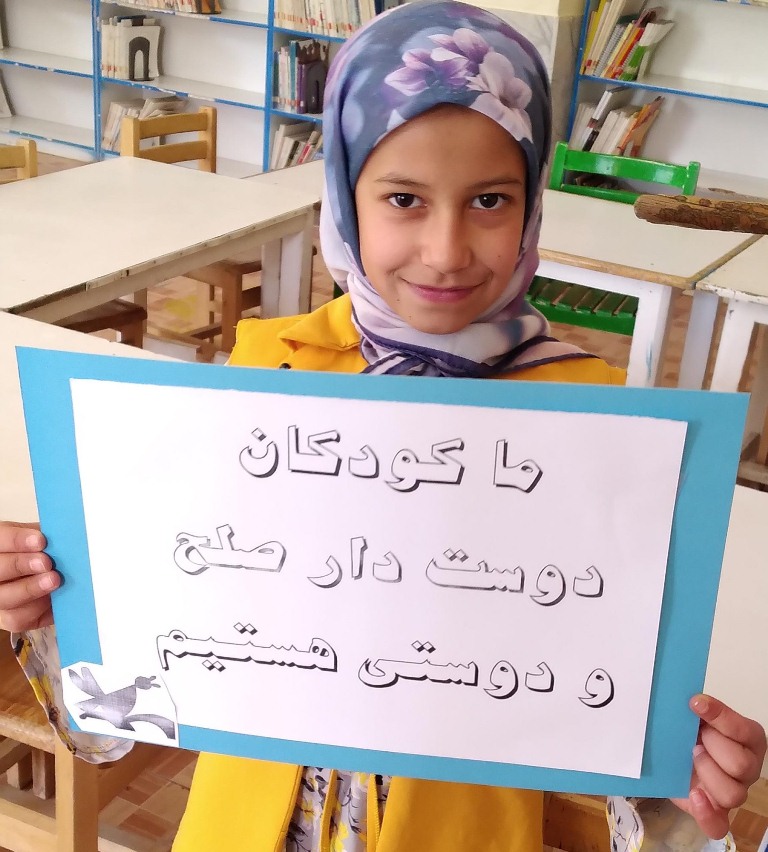 ما کودکان
دوست دار صلح
و دوستی هستیم